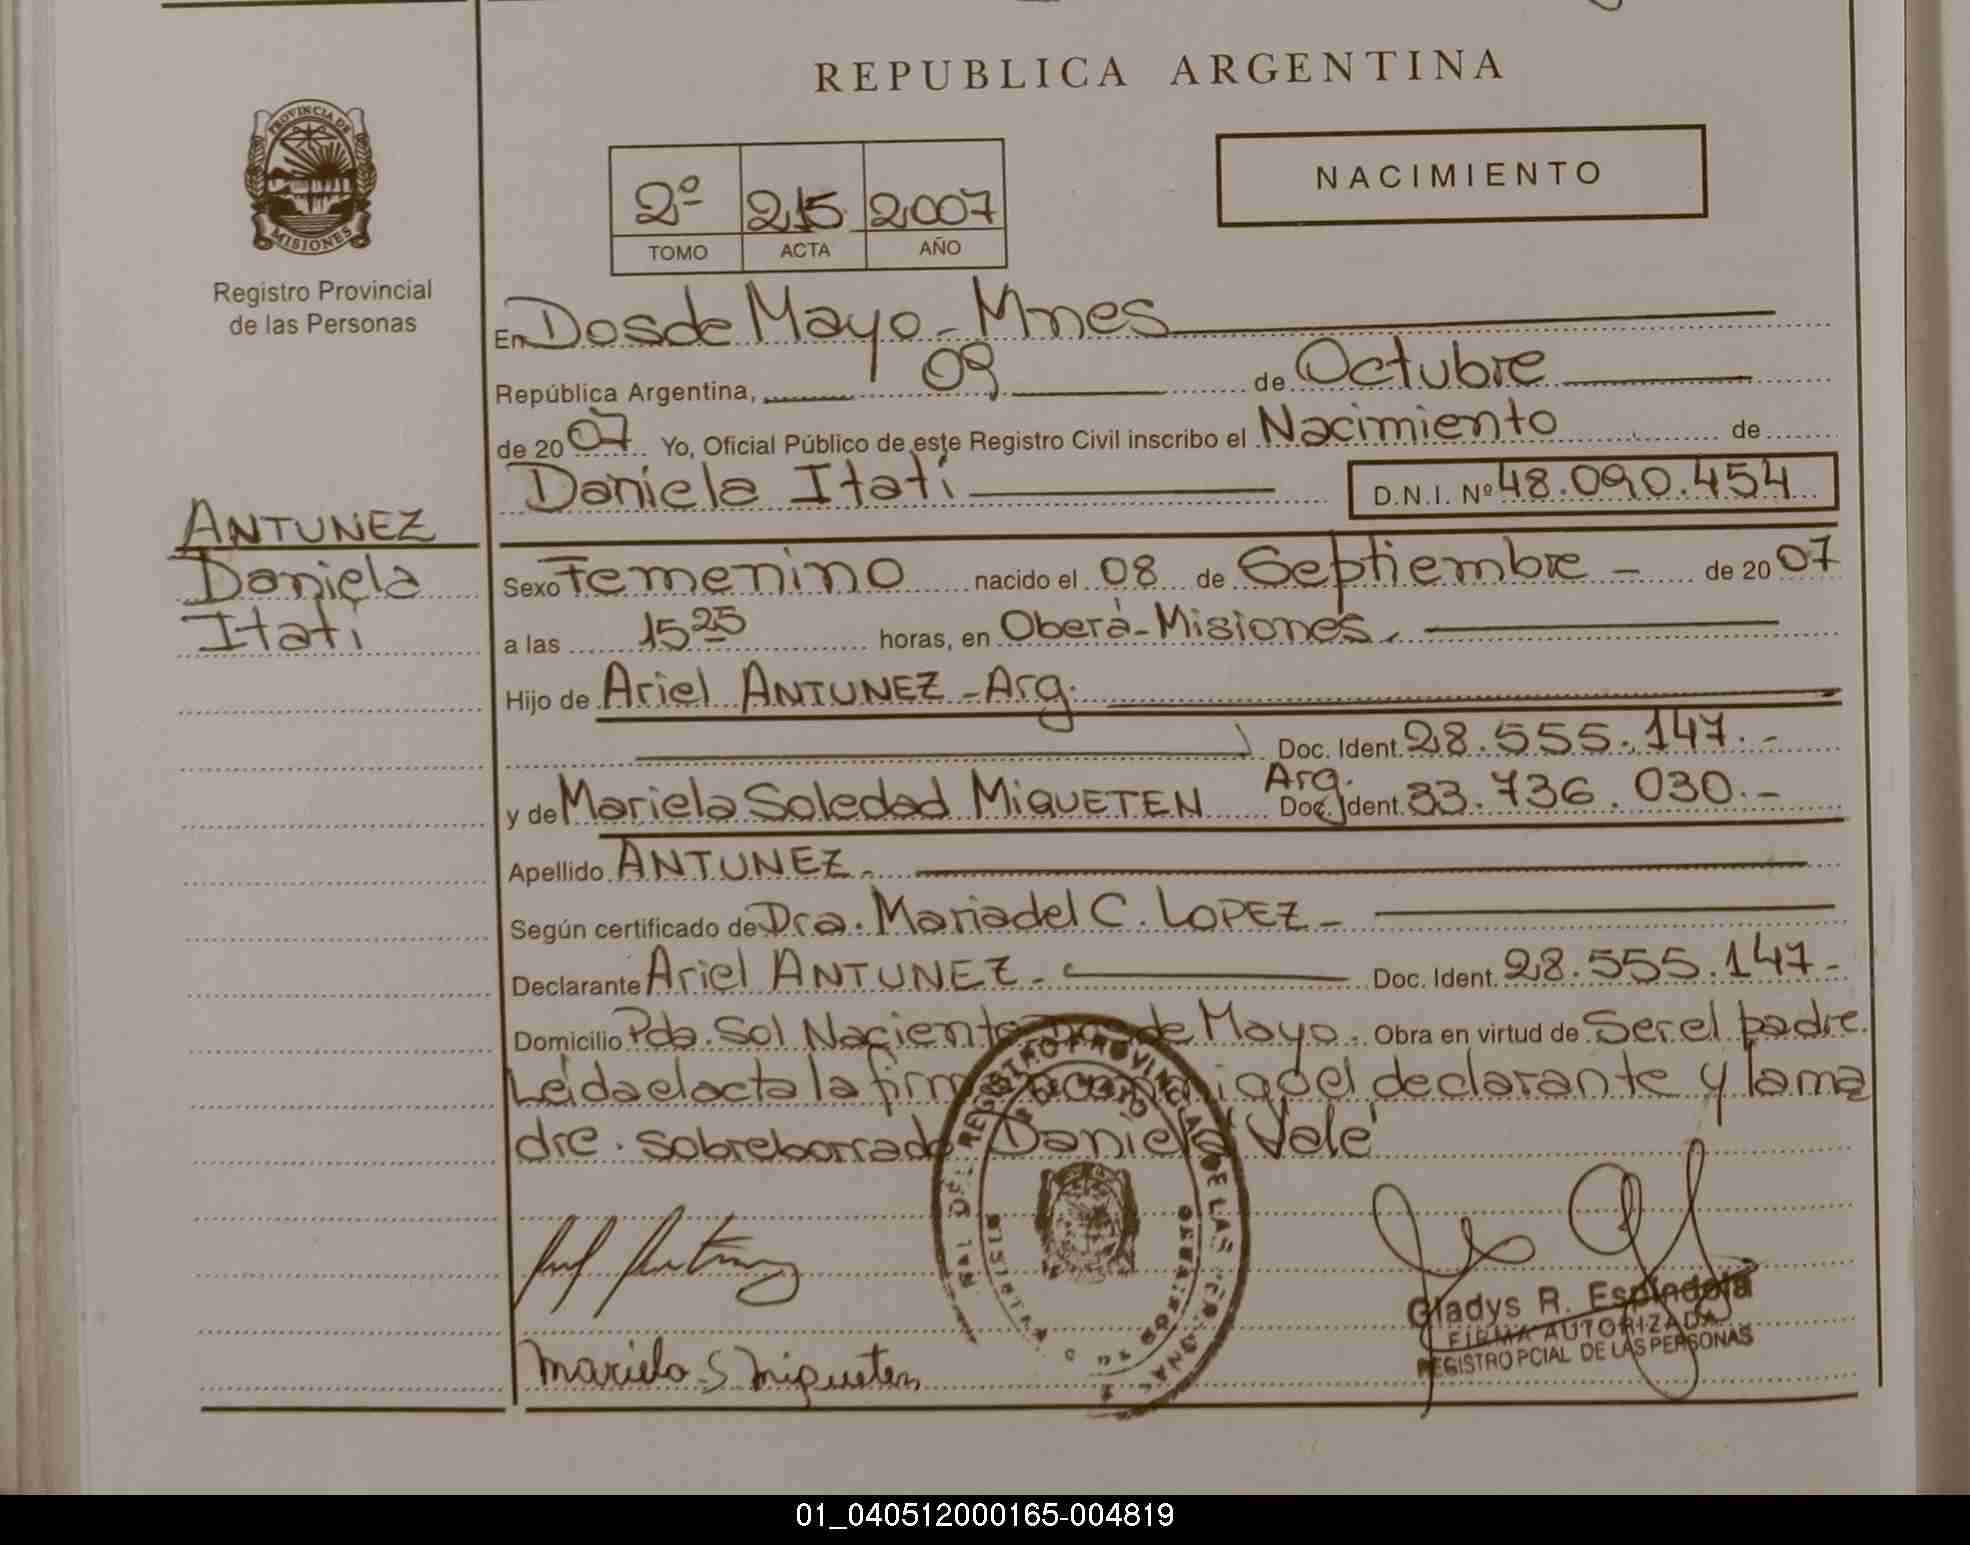 REPUBLICA ARGENTINA
PROVINCIA DE
MISIONES
Registro Provincial
de las Personas
NACIMIENTO
2º 215 2007
TOMO ACTA AÑO
En Dos de Mayo - Mnes
República Argentina, 09 de Octubre
de 2007 Yo, Oficial Público de este Registro Civil inscribo el Nacimiento de
Daniela Itatí D.N.I. Nº 48.090.454
ANTUNEZ
Daniela
Itatí
Sexo Femenino nacido el 08 de Septiembre - de 2007
a las 15 25 horas, en Oberá - Misiones.
Hijo de Ariel ANTUNEZ - Arg.
Doc. Ident. 28.555.147.-
y de Mariela Soledad MIQUETEN Arg. Doc. Ident. 33.736.030.-
Apellido ANTUNEZ.
Según certificado de Dra. Maria del C. LOPEZ -
Declarante Ariel ANTUNEZ - Doc. Ident. 28.555.147-
Domicilio Pda. Sol Naciente Dos de Mayo. Obra en virtud de Ser el padre.
Leída el acta la firma el declarante y la ma
dre. Sobreborrado Daniela Vale
Mariela S Miqueten
Gladys R. Espindola
FIRMA AUTORIZADA
REGISTRO PCIAL DE LAS PERSONAS
01_040512000165-004819